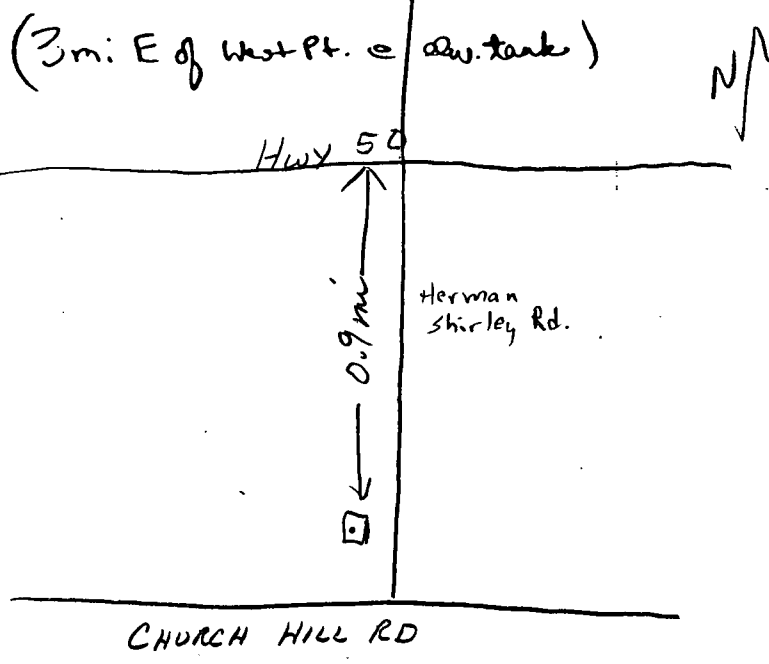 (3 mi E of West Pt. @ ew. tank)
N
Hwy 50
0.9 mi
Herman
Shirley Rd.
CHURCH HILL RD